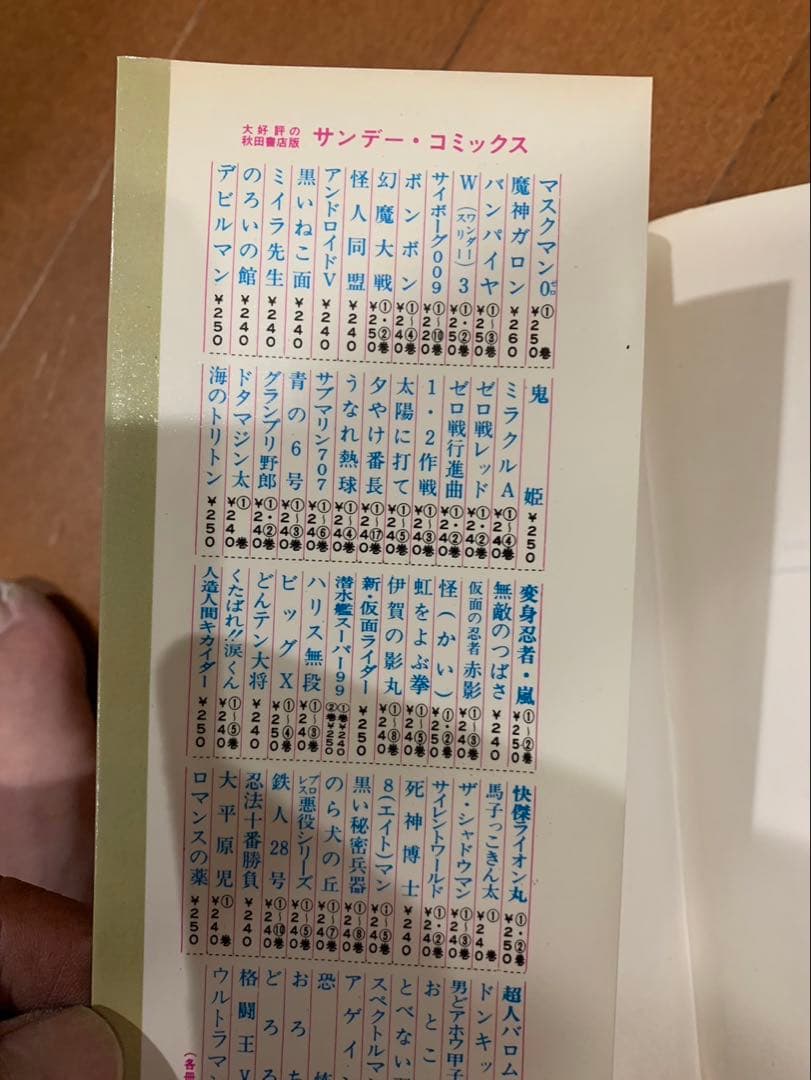 大好評の
秋田書店版
サンデー・コミックス
マスクマン0 ゼロ ① ¥250 巻
魔神ガロン ¥260
バンパイヤ ①〜③巻 ¥250
W(ワンダー)3(スリー) ①・②巻 ¥250
サイボーグ009 ①〜⑩巻 ¥220
ボンボン ①〜④巻 ¥240
幻魔大戦 ①・②巻 ¥250
怪人同盟 ¥240
アンドロイドV ¥240
黒いねこ面 ¥240
ミイラ先生 ¥240
のろいの館 ¥240
デビルマン ¥250
鬼姫 ¥250
ミラクルA ①〜④巻 ¥240
ゼロ戦レッド ①・②巻 ¥240
ゼロ戦行進曲 ①・②巻 ¥240
1・2作戦 ①〜③巻 ¥240
太陽に打て ①〜⑤巻 ¥240
夕やけ番長 ①〜⑰巻 ¥240
うなれ熱球 ①〜④巻 ¥240
サブマリン707 ①〜⑥巻 ¥240
青の6号 ①〜③巻 ¥240
グランプリ野郎 ①・②巻 ¥240
ドタマジン太 ① ¥240 巻
海のトリトン ¥250
変身忍者・嵐 ①〜②巻 ¥250
無敵のつばさ ¥240
仮面の忍者 赤影 ①〜③巻 ¥240
怪(かい) ①・②巻 ¥250
虹をよぶ拳 ①〜⑤巻 ¥240
伊賀の影丸 ①〜⑧巻 ¥240
新・仮面ライダー ¥250
潜水艦スーパー99 ①巻¥240 ②巻¥250
ハリス無段 ①〜③巻 ¥240
ビッグX ①〜④巻 ¥250
どんテン大将 ¥240
くたばれ!!涙くん ①〜⑤巻 ¥240
人造人間キカイダー ¥250
快傑ライオン丸 ①・②巻 ¥250
馬子っこきん太 ① ¥240 巻
ザ・シャドウマン ①〜③巻 ¥240
サイレントワールド ①・②巻 ¥240
死神博士 ¥240
8(エイト)マン ①〜⑤巻 ¥240
黒い秘密兵器 ①〜⑧巻 ¥240
のら犬の丘 ①〜⑦巻 ¥240
プロレス悪役シリーズ ①〜⑤巻 ¥240
鉄人28号 ①〜⑩巻 ¥240
忍法十番勝負 ¥240
大平原児 ① ¥240 巻
ロマンスの薬 ¥250
超人バロム
ドンキッ
男どアホウ甲子
おとこ
とべない
スペクトルマ
アゲイン
恐
おろち
どろろ
格闘王V
ウルトラマン
(各冊